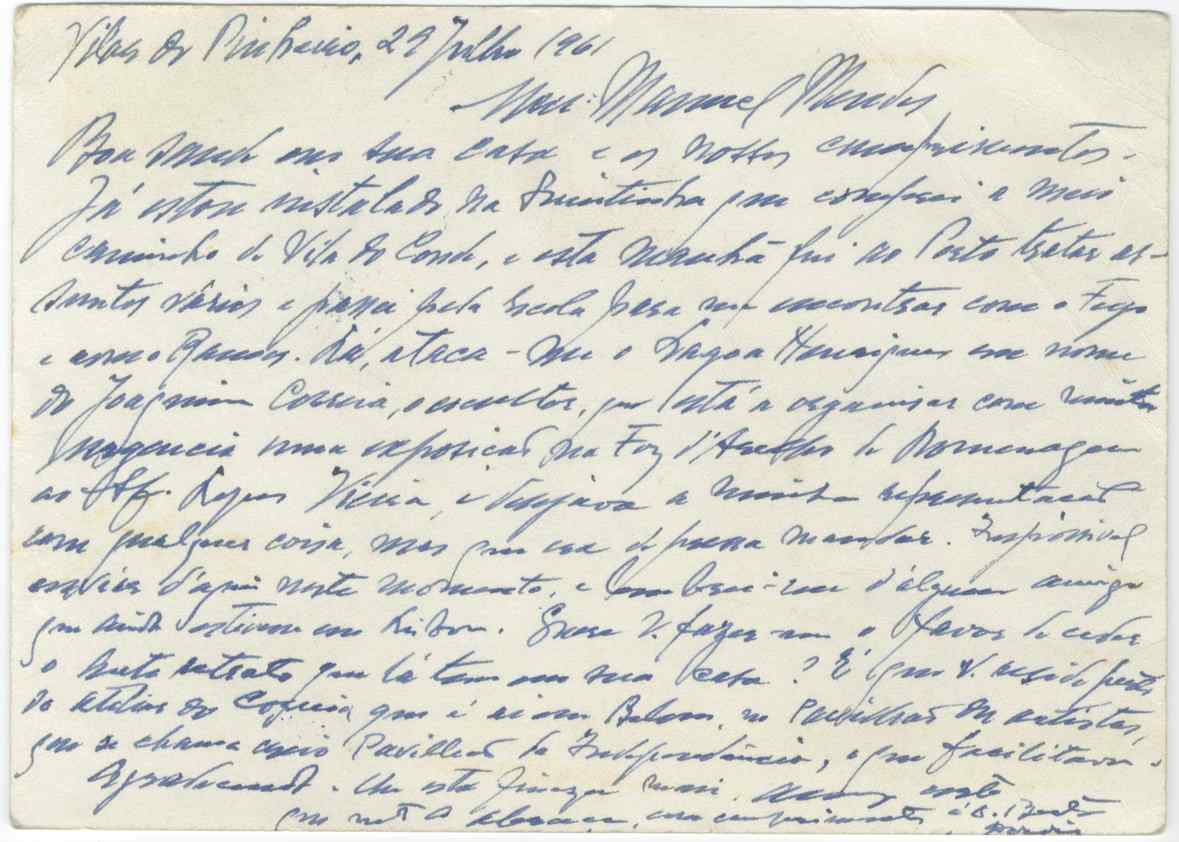 Vilar do Pinheiro, 29 Julho 1961
Meu: Manuel Mendes
Boa saude em sua casa e os nossos cumprimentos.
Já estou instalado na Quintinha que comprei a meio
caminho de Vila do Conde, e esta manhã fui ao Porto tratar as-
suntos vários e passei pela Escola para me encontrar com o
e com o Ramos. Lá, ataca-me o Lagoa Henriques em nome
do Joaquim Correia, o escultor, que está a organisar com muita
urgencia uma exposicaõ na Foz d'Arelho de Homenagem
ao Aff. Lopes Vieira, e desejava a minha representacaõ
com qualquer coisa, mas que era de pressa mandar. Impossivel
enviar d'aqui neste momento, e lembrei-me d'algum amigo
que ainda estivesse em Lisboa. Quere V. fazer-me o favor de ceder
o auto retrato que lá tem em sua casa? É que V. reside perto
do atelier do Correia que é ai em Belem, no Pavilhaõ dos artistas,
que se chama creio Pavilhaõ da Independência, o que facilitava.
Agradecendo-lhe esta fineza mais,
um abraço, com cumprimentos á D. Berta